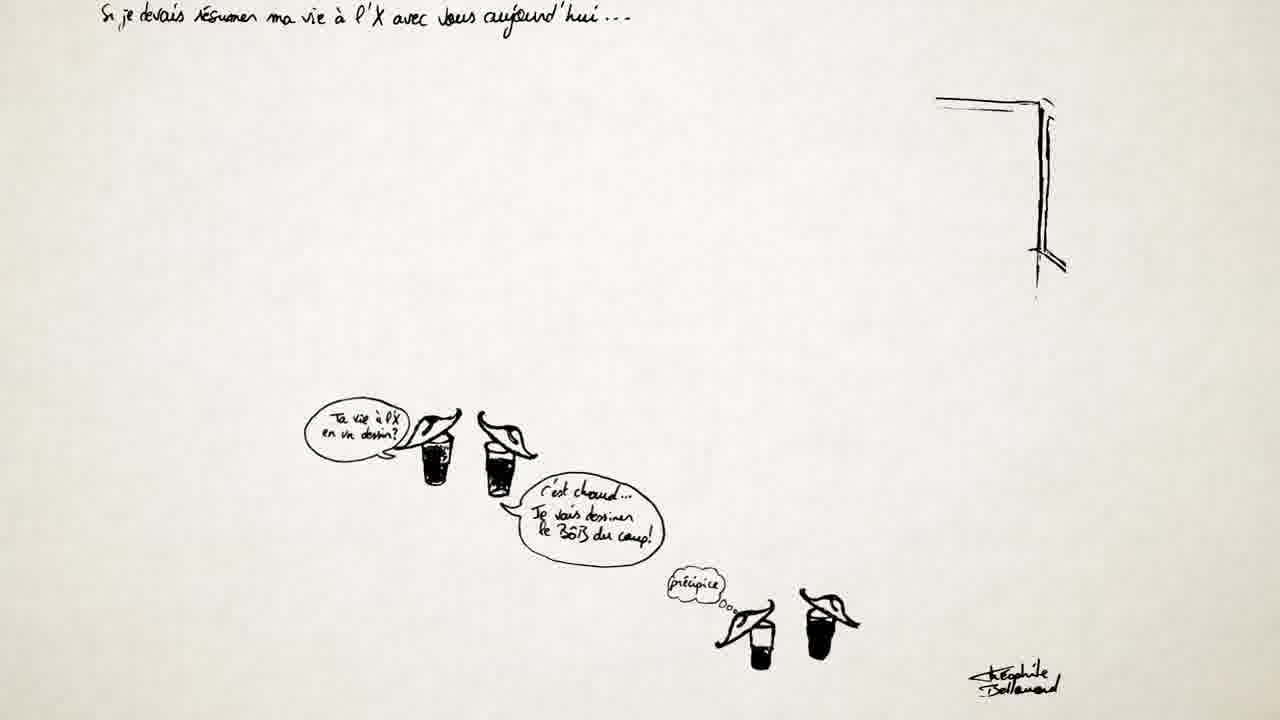 Si je devais résumer ma vie à l'X avec vous aujourd'hui...
Ta vie à l'X
en un dessin?
C'est chaud...
Je vais dessiner
le BôB du coup!
précipice
Théophile